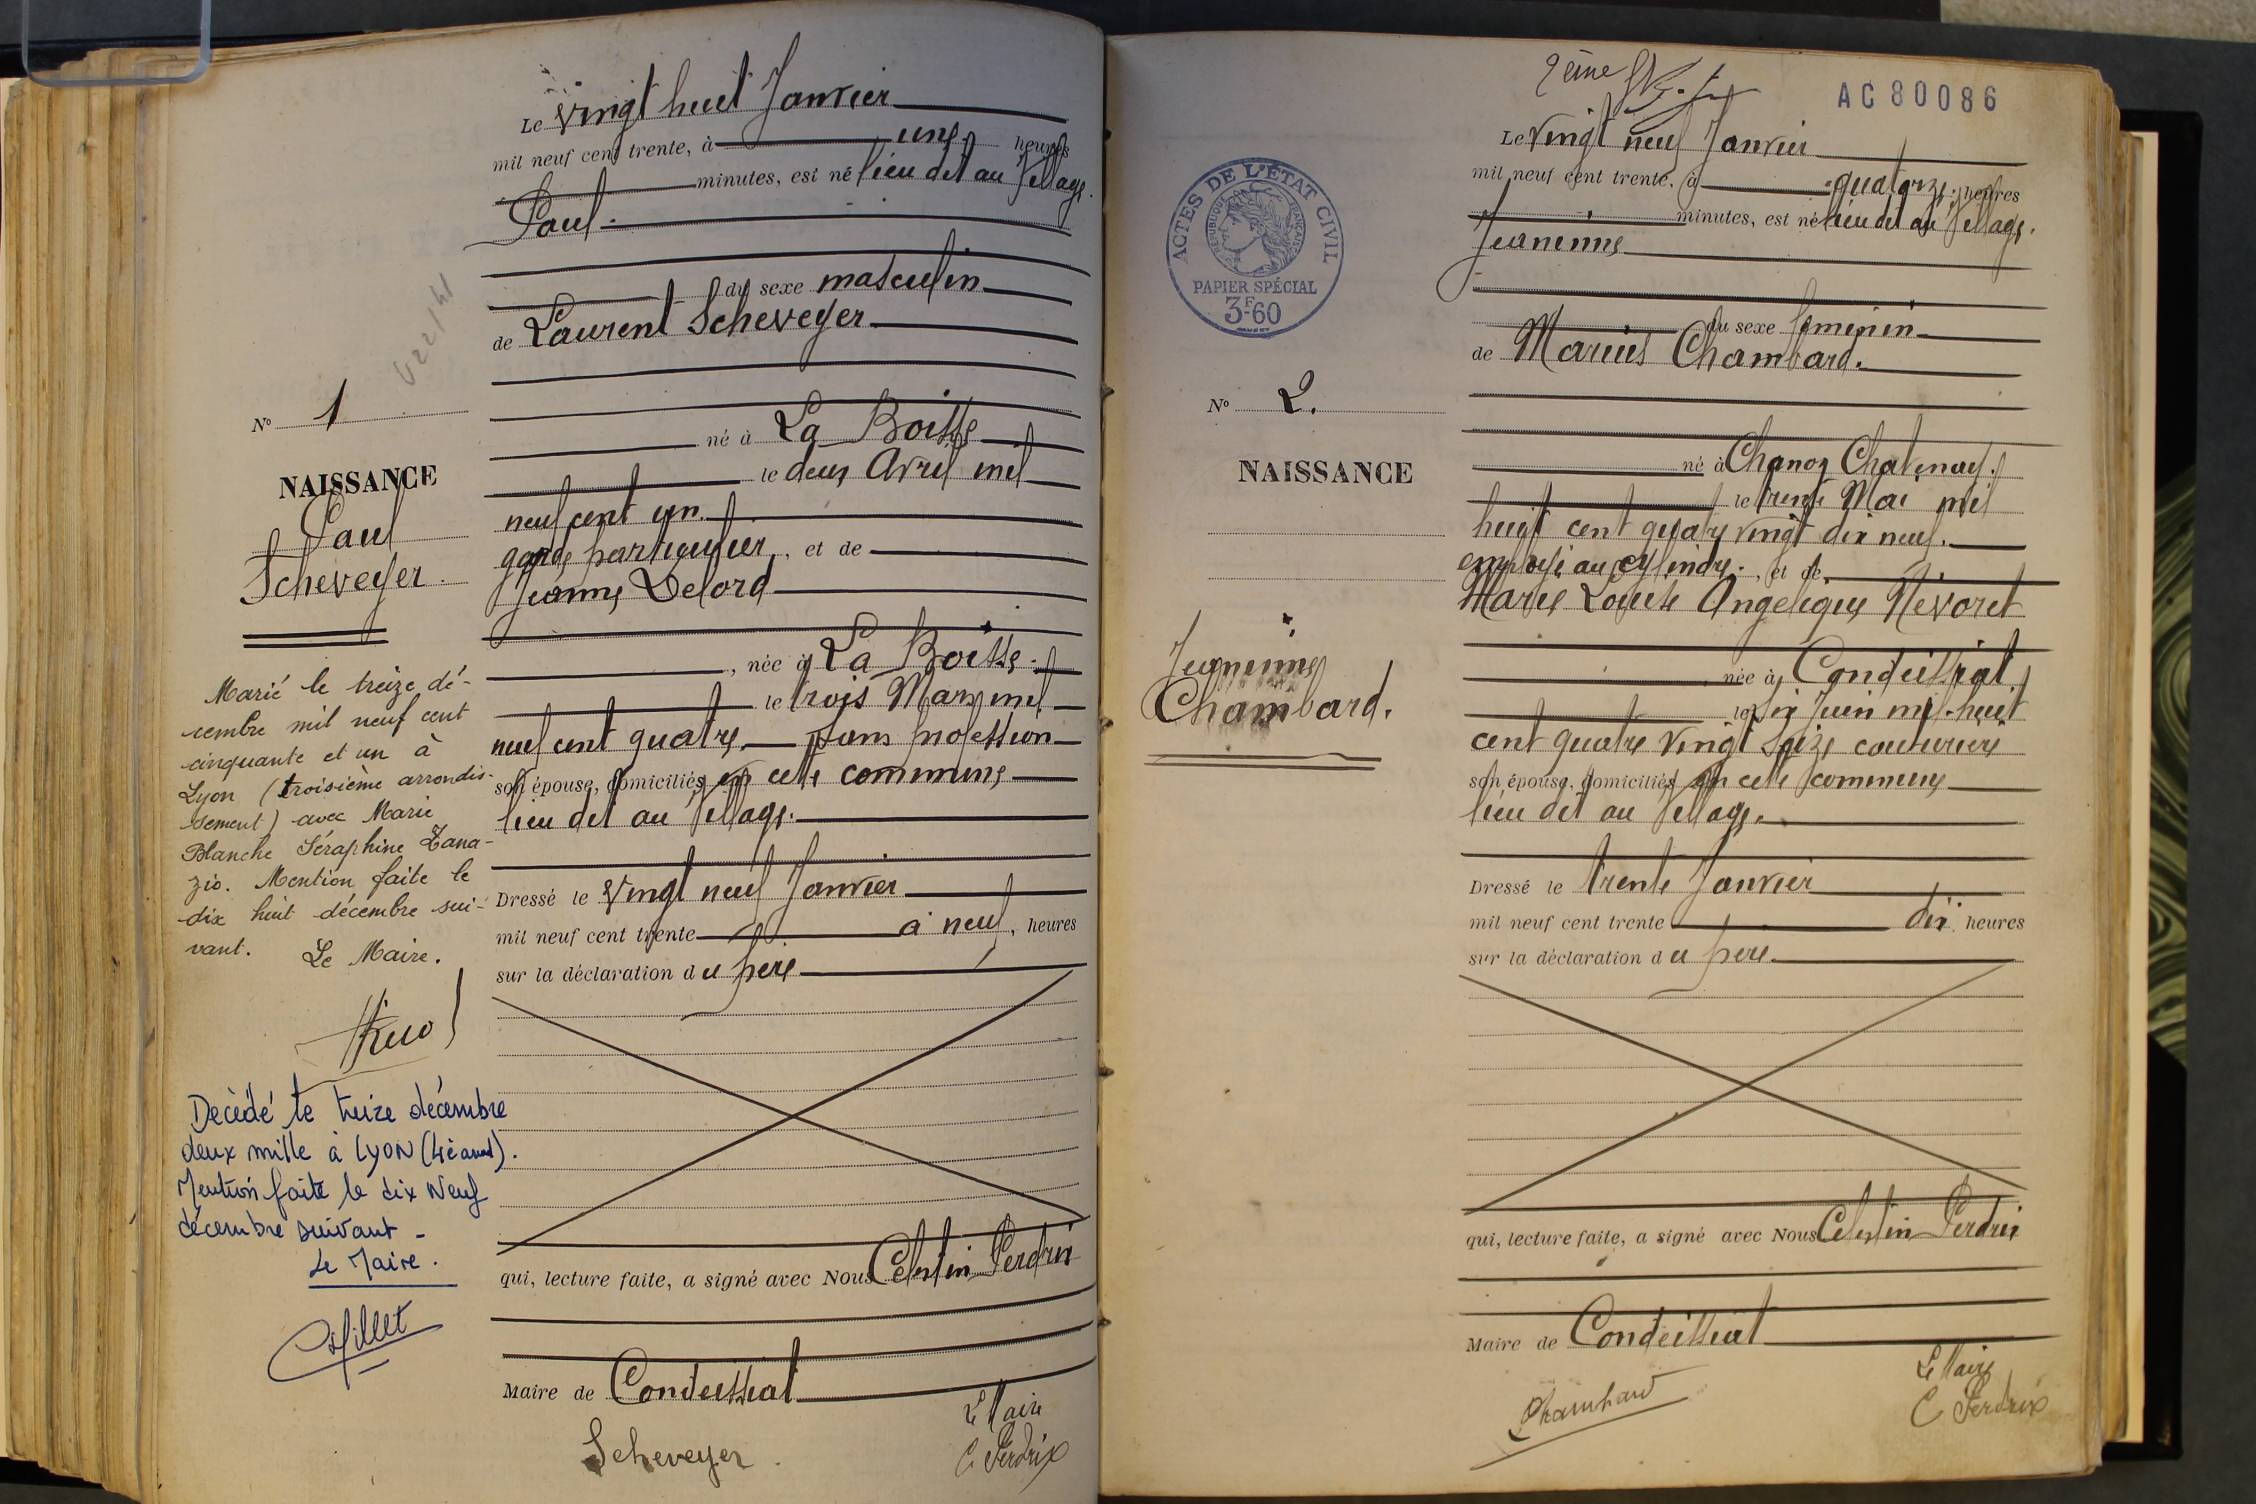 Le vingt huit Janvier
mil neuf cent trente, à une heures
minutes, est né lieu dit au Village.
Paul
du sexe masculin
de Laurent Scheveyer
né à La Boisse
le deux Avril mil
neuf cent un
garde particulier, et de
Jeanne Delord
, née à La Boisse
le trois Mars mil
neuf cent quatre sans profession
son épouse, domiciliés en cette commune
lieu dit au Village.
Dressé le vingt neuf Janvier
mil neuf cent trente à neuf, heures
sur la déclaration du père
qui, lecture faite, a signé avec Nous Celestin Perdrix
Maire de Condeissiat
Le Maire
Scheveyer
C Perdrix
N° 1
NAISSANCE
Paul
Scheveyer
Marié le treize dé-
cembre mil neuf cent
cinquante et un à
Lyon (troisième arrondis-
sement) avec Marie
Blanche Séraphine Zana-
zio. Mention faite le
dix huit décembre sui-
vant. Le Maire.
Decédé le treize décembre
deux mille à LYON (4è arrdt).
Mention faite le dix Neuf
décembre suivant -
Le Maire.
2ème
AC80086
Le vingt neuf Janvier
mil neuf cent trente, à quatorze heures
minutes, est né lieu dit au Village.
Jeannine
du sexe féminin
de Marius Chambard.
né à Chanoz Chatenay.
le trente Mai mil
huit cent quatre vingt dix neuf.
employé au cylindre., et de
Marie Louise Angelique Nevoret
née à Condeissiat
le six Juin mil huit
cent quatre vingt seize couturière
son épouse, domiciliés en cette commune
lieu dit au Village.
Dressé le trente Janvier
mil neuf cent trente dix heures
sur la déclaration du père
qui, lecture faite, a signé avec Nous Celestin Perdrix
Maire de Condeissiat
Le Maire
Chambard
C Perdrix
ACTES DE L'ÉTAT CIVIL
RÉPUBLIQUE FRANÇAISE
PAPIER SPÉCIAL
3F60
N° 2.
NAISSANCE
Jeannine
Chambard.